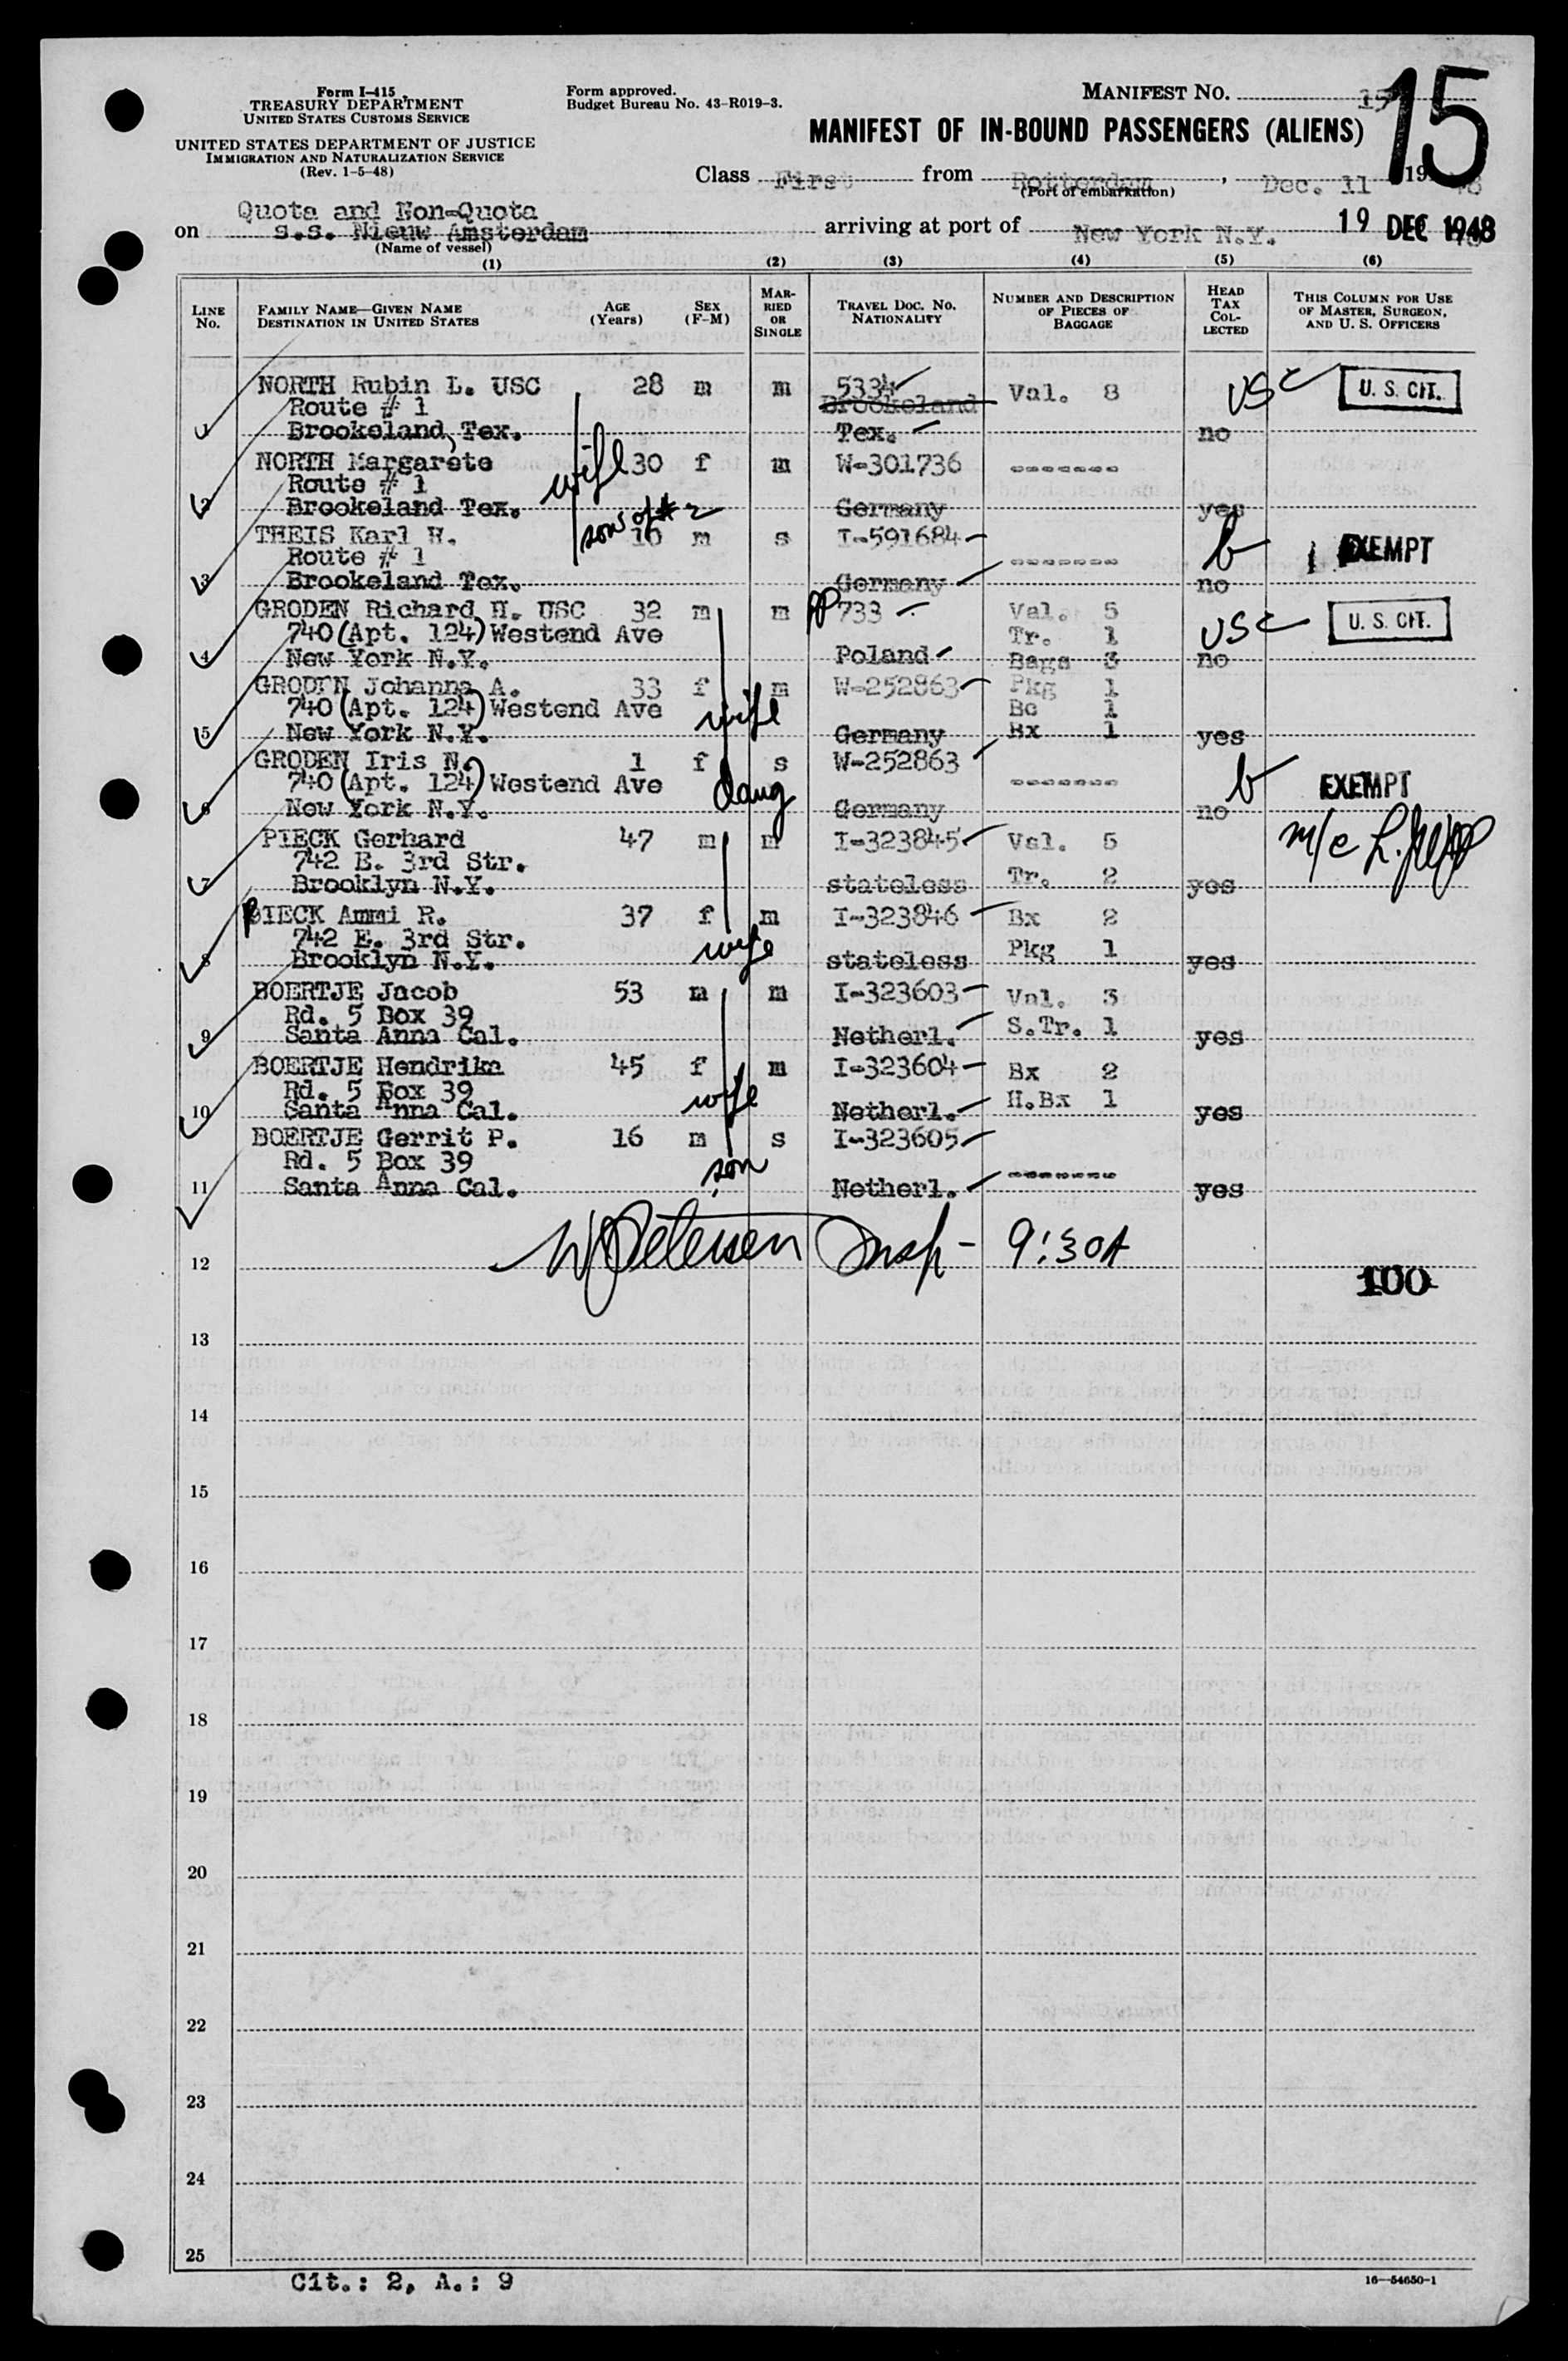 Form I-415
TREASURY DEPARTMENT
UNITED STATES CUSTOMS SERVICE
UNITED STATES DEPARTMENT OF JUSTICE
IMMIGRATION AND NATURALIZATION SERVICE
(Rev. 1-5-48)
Form approved.
Budget Bureau No. 43-R019-3.
MANIFEST NO. 15
15
MANIFEST OF IN-BOUND PASSENGERS (ALIENS)
Class First from Rotterdam, Dec. 11 1948
(Port of embarkation)
Quota and Non-Quota
on s.s. Nieuw Amsterdam arriving at port of New York N.Y. 19 DEC 1948
(Name of vessel)
(1) (2) (3) (4) (5) (6)
LINE No. FAMILY NAME—GIVEN NAME DESTINATION IN UNITED STATES AGE (Years) SEX (F-M) MARRIED OR SINGLE TRAVEL DOC. NO. NATIONALITY NUMBER AND DESCRIPTION OF PIECES OF BAGGAGE HEAD TAX COLLECTED THIS COLUMN FOR USE OF MASTER, SURGEON, AND U. S. OFFICERS
NORTH Rubin L. USC 28 m m 5334 Val. 8 USC U. S. CIT.
Route # 1 Brookeland
1 Brookeland, Tex. Tex. no
NORTH Margarete wife 30 f m W-301736 -------
Route # 1
2 Brookeland Tex. Germany yes
son of # 2
THEIS Karl H. 10 m s I-591684 b EXEMPT
Route # 1 -------
3 Brookeland Tex. Germany no
GRODEN Richard H. USC 32 m m PP 733 Val. 5 USC U. S. CIT.
740 (Apt. 124) Westend Ave Tr. 1
4 New York N.Y. Poland Bags 3 no
GRODEN Johanna A. 33 f m W-252863 Pkg 1
740 (Apt. 124) Westend Ave wife Bc 1
5 New York N.Y. Germany Bx 1 yes
GRODEN Iris N. 1 f s W-252863 b EXEMPT
740 (Apt. 124) Westend Ave daug -------
6 New York N.Y. Germany no
PIECK Gerhard 47 m m I-323845 Val. 5 m/c
742 E. 3rd Str.
7 Brooklyn N.Y. stateless Tr. 2 yes
PIECK Ammi R. 37 f m I-323846 Bx 2
742 E. 3rd Str. wife
8 Brooklyn N.Y. stateless Pkg 1 yes
BOERTJE Jacob 53 m m I-323603 Val. 3
Rd. 5 Box 39
9 Santa Anna Cal. Netherl. S.Tr. 1 yes
BOERTJE Hendrika 45 f m I-323604 Bx 2
Rd. 5 Box 39 wife
10 Santa Anna Cal. Netherl. H.Bx 1 yes
BOERTJE Gerrit P. 16 m s I-323605
Rd. 5 Box 39 son -------
11 Santa Anna Cal. Netherl. yes
12 W Petersen Insp- 9:30A
100
13
14
15
16
17
18
19
20
21
22
23
24
25
Cit.: 2, A.: 9
16—54650-1